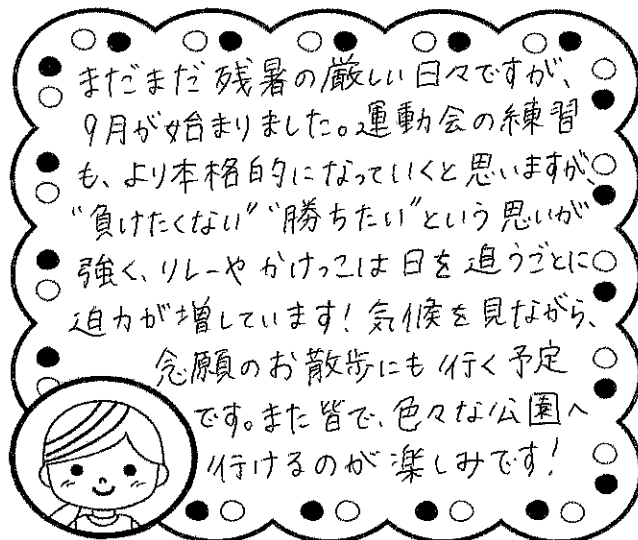 まだまだ残暑の厳しい日々ですが、
9月が始まりました。運動会の練習
も、より本格的になっていくと思いますが、
“負けたくない”“勝ちたい”という思いが
強く、リレーやかけっこは日を追うごとに
迫力が増しています！気候を見ながら、
念願のお散歩にも行く予定
です。また皆で、色々な公園へ
行けるのが楽しみです！